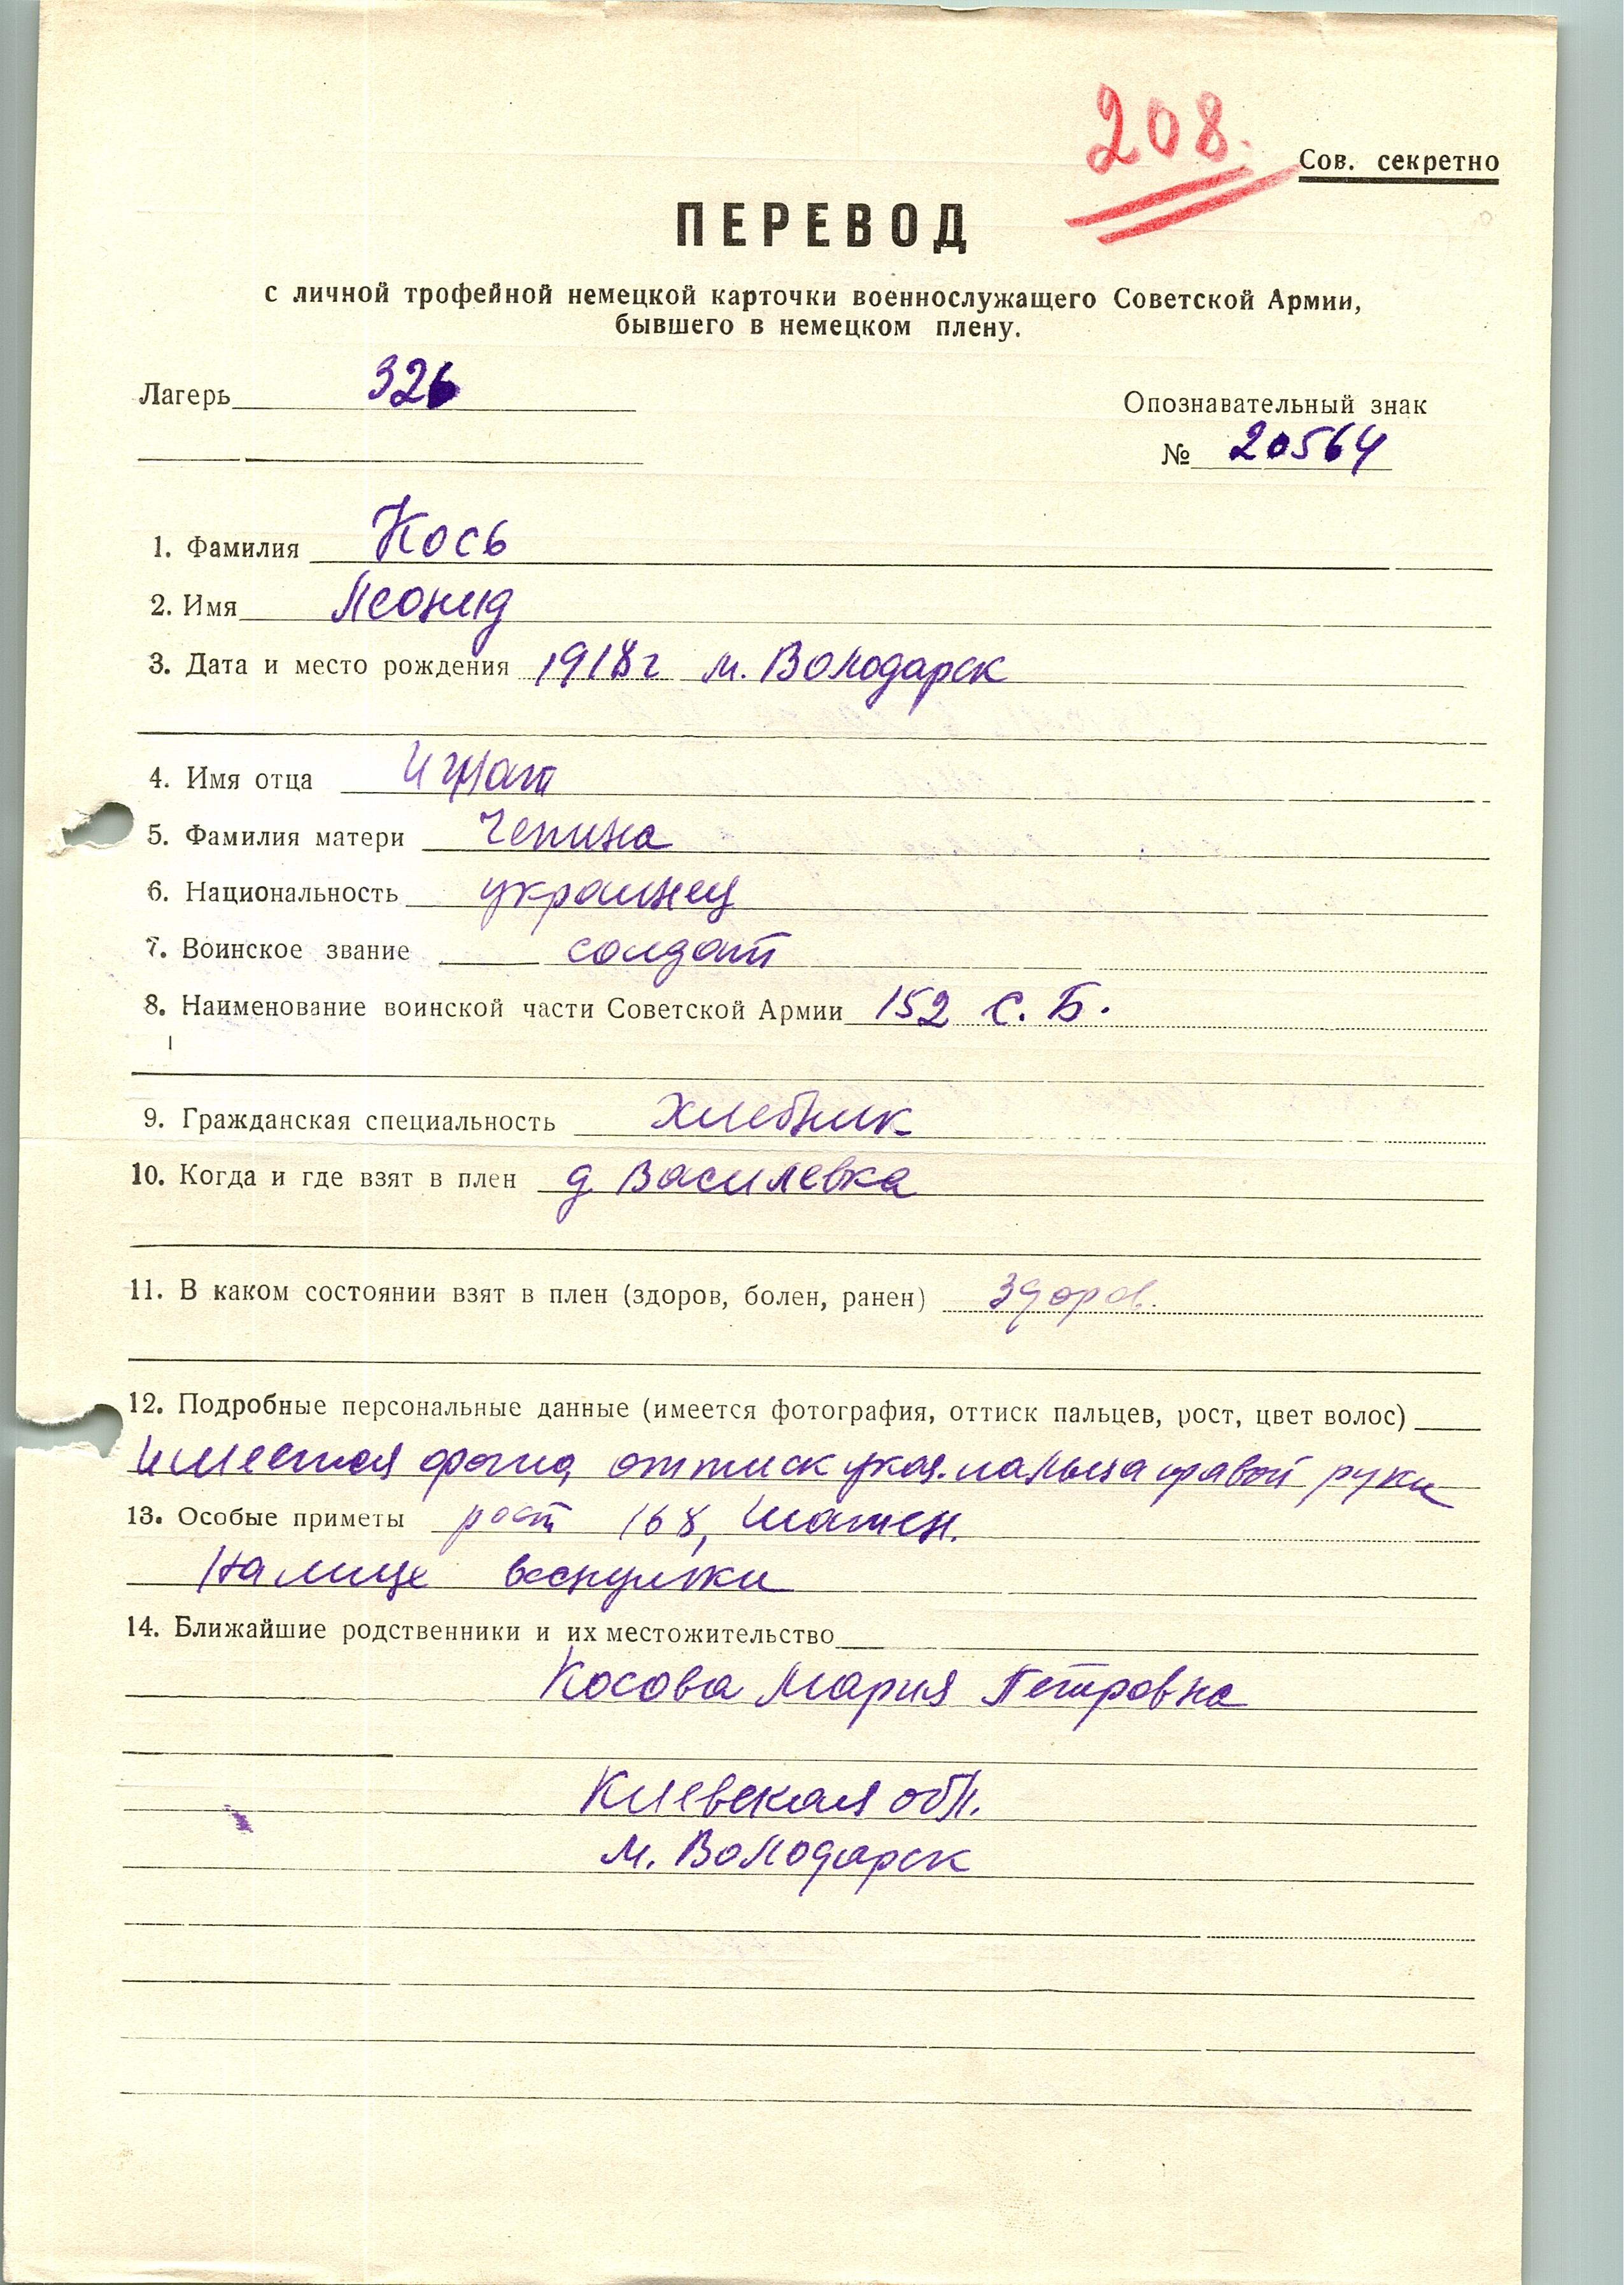 208.
Сов. секретно
ПЕРЕВОД
с личной трофейной немецкой карточки военнослужащего Советской Армии,
бывшего в немецком плену.
Лагерь 326
Опознавательный знак
№ 20564
1. Фамилия Кось
2. Имя Леонид
3. Дата и место рождения 1918 г м. Володарск
4. Имя отца Игнат
5. Фамилия матери Чепина
6. Национальность украинец
7. Воинское звание солдат
8. Наименование воинской части Советской Армии 152 С. Б.
9. Гражданская специальность хлебник
10. Когда и где взят в плен д Василевка
11. В каком состоянии взят в плен (здоров, болен, ранен) здоров.
12. Подробные персональные данные (имеется фотография, оттиск пальцев, рост, цвет волос)
имеется фотог, оттиск указ. пальца правой руки
13. Особые приметы рост 168, шатен.
На лице веснушки
14. Ближайшие родственники и их местожительство
Косова Мария Петровна
Киевская обл.
м. Володарск